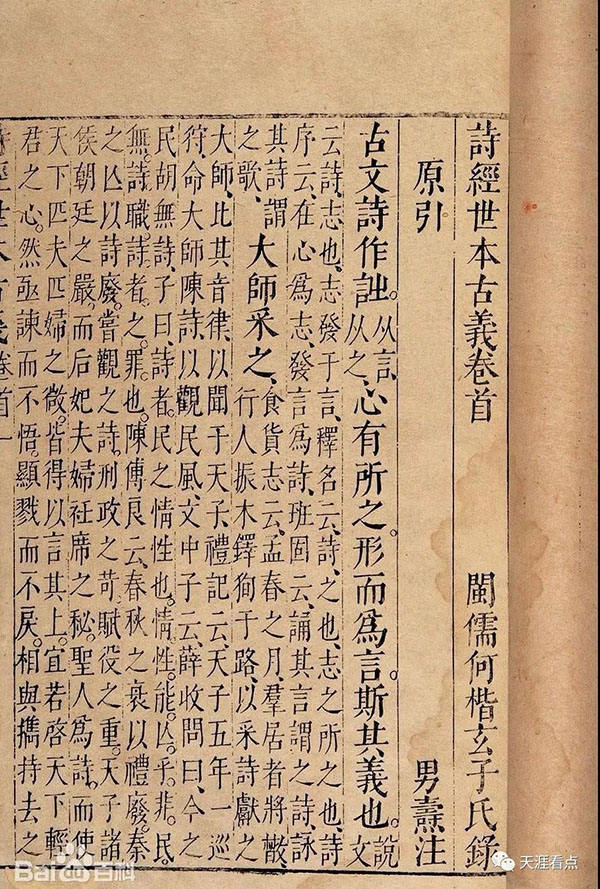 詩經世本古義卷首 閩儒何楷玄子氏錄
原引 男燾注
古文詩作𧥳。从言、从之、心有所之。形而爲言斯其義也。說文
云、詩、志也、志發于言、釋名云、詩、之也、志之所之也、詩
序云、在心爲志、發言爲詩、班固云、誦其言謂之詩、詠
其詩謂之歌、大師采之、食貨志云、孟春之月、羣居者將散、行人振木鐸徇于路、以采詩獻之
大師、比其音律、以聞于天子、禮記云、天子五年一巡
狩、命大師陳詩、以觀民風、文中子云、薛收問曰、今之
民胡無詩、子曰、詩者、民之情性也。情性能亡乎。非民
無詩、職詩者之罪也。陳傅良云、春秋之衰以禮廢。秦
之亡以詩廢。嘗觀之詩。刑政之苛、賦役之重。天子諸
侯朝廷之嚴、而后妃夫婦衽席之秘。聖人爲詩。而使
天下匹夫匹婦之微。皆得以言其上。宜若啓天下輕
君之心。然亟諫而不悟。顯戮而不戾。相與攜持去之
經世本古義卷首一
Baidu百科
天涯看点